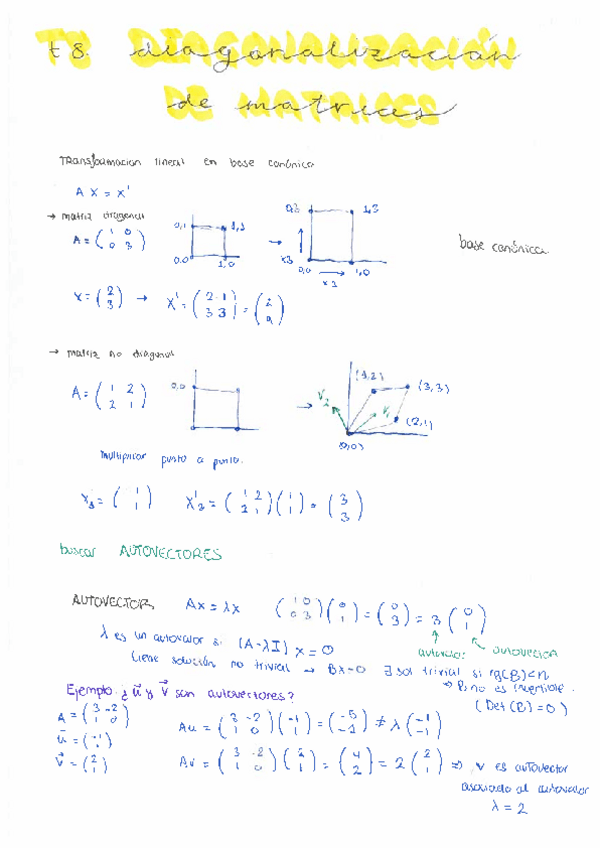 T8. diagonalización
de matrices
Transformacion lineal en base canónica
A X = X'
→ matriz diagonal
A = (1 0 / 0 3)
0,1
1,3
0,0
1,0
→
0,3
1,3
x3
0,0
1,0
x3
base canónica
x = (2 / 3) → X' = (2·1 / 3·3) = (2 / 9)
→ matriz no diagonal
A = (1 2 / 2 1)
0,0
→
(1,2)
(3,3)
V2
V1
(2,1)
(0,0)
multiplicar punto a punto.
X3 = (1 / 1) X'3 = (1 2 / 2 1)(1 / 1) = (3 / 3)
buscar AUTOVECTORES
AUTOVECTOR Ax = λx (1 0 / 0 3)(0 / 1) = (0 / 3) = 3 (0 / 1)
autovalor autovector
λ es un autovalor si (A-λI) x = 0
tiene solución no trivial → Bx=0 ∃ sol trivial si rg(B)<n
→ B no es invertible.
(Det(B)=0)
Ejemplo ¿ u⃗ y v⃗ son autovectores?
A = (3 -2 / 1 0)
u⃗ = (-1 / 1)
v⃗ = (2 / 1)
Au = (3 -2 / 1 0)(-1 / 1) = (-5 / -1) ≠ λ (-1 / -1)
Av = (3 -2 / 1 0)(2 / 1) = (4 / 2) = 2 (2 / 1) ⇒ v es autovector
asociado al autovalor
λ = 2